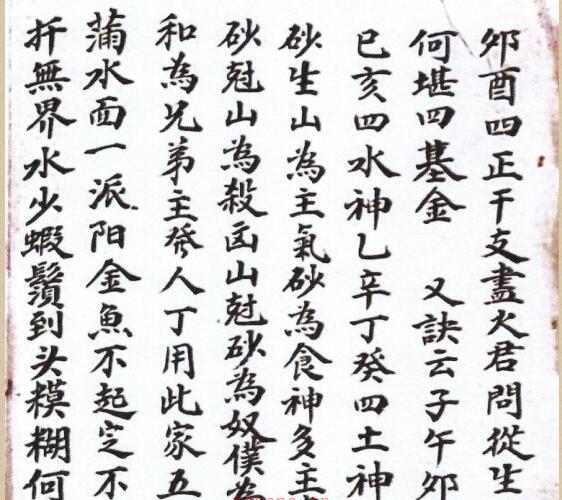 卯酉四正干支盡火君問從生
何堪四基金 又訣云子午卯
巳亥四水神乙辛丁癸四土神
砂生山為主氣砂為食神多主
砂尅山為殺凶山尅砂為奴僕為
和為兄弟主發人丁用此家五
蒲水面一派阳金魚不起定不
扦無界水少蝦鬚到头模糊何